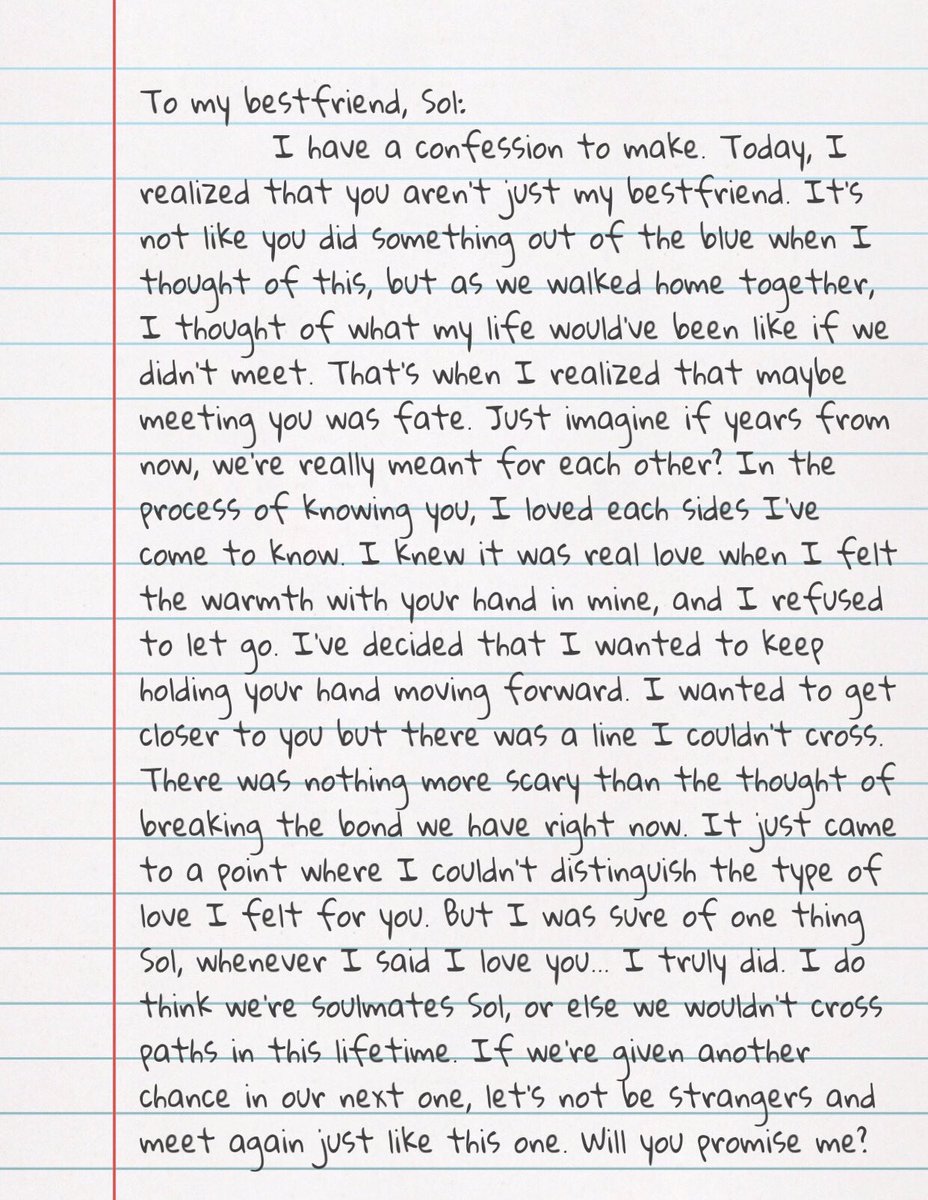 To my bestfriend, Sol:
I have a confession to make. Today, I
realized that you aren't just my bestfriend. It's
not like you did something out of the blue when I
thought of this, but as we walked home together,
I thought of what my life would've been like if we
didn't meet. That's when I realized that maybe
meeting you was fate. Just imagine if years from
now, we're really meant for each other? In the
process of knowing you, I loved each sides I've
come to know. I knew it was real love when I felt
the warmth with your hand in mine, and I refused
to let go. I've decided that I wanted to keep
holding your hand moving forward. I wanted to get
closer to you but there was a line I couldn't cross.
There was nothing more scary than the thought of
breaking the bond we have right now. It just came
to a point where I couldn't distinguish the type of
love I felt for you. But I was sure of one thing
Sol, whenever I said I love you... I truly did. I do
think we're soulmates Sol, or else we wouldn't cross
paths in this lifetime. If we're given another
chance in our next one, let's not be strangers and
meet again just like this one. Will you promise me?